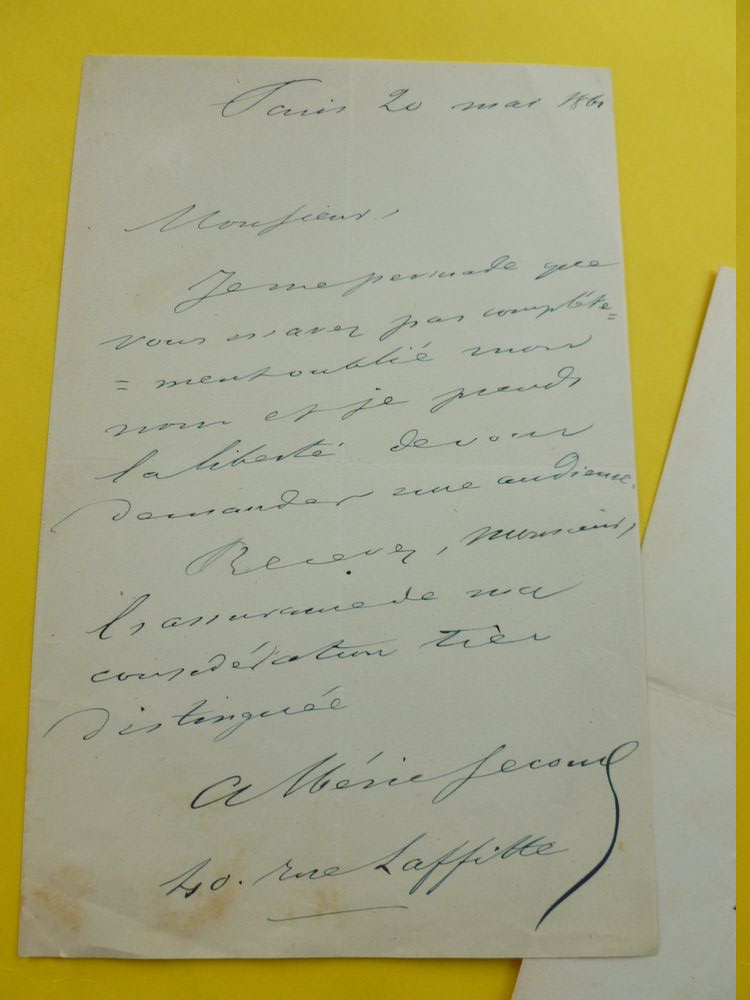 Paris 20 mai 1861
Monsieur,
Je me persuade que
vous n'avez pas complète=
=ment oublié mon
nom et je prends
la liberté de vous
demander une audience.
Recevez, Monsieur,
l'assurance de ma
considération très
distinguée
Albéric Second
40. rue Laffitte